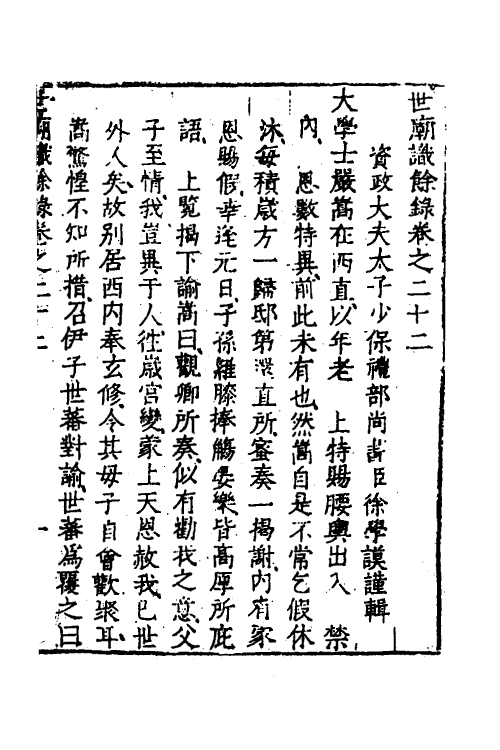 世廟識餘錄卷之二十二
資政大夫太子少保禮部尚書臣徐學謨謹輯
大學士嚴嵩在西直以年老　上特賜腰輿出入　禁
內　恩數特異前此未有也然嵩自是不常乞假休
沐每積歲方一歸邸第還直所密奏一揭謝內有蒙
恩賜假幸逢元日子孫羅膝捧觴宴樂皆高厚所庇
語　上覽揭下諭嵩曰觀卿所奏似有勸我之意父
子至情我豈異于人徃歲宮變蒙上天恩赦我已世
外人矣故別居西內奉玄修令其母子自會歡聚耳
嵩驚惶不知所措召伊子世蕃對諭世蕃為覆之曰
世廟識餘錄卷之二十二
一